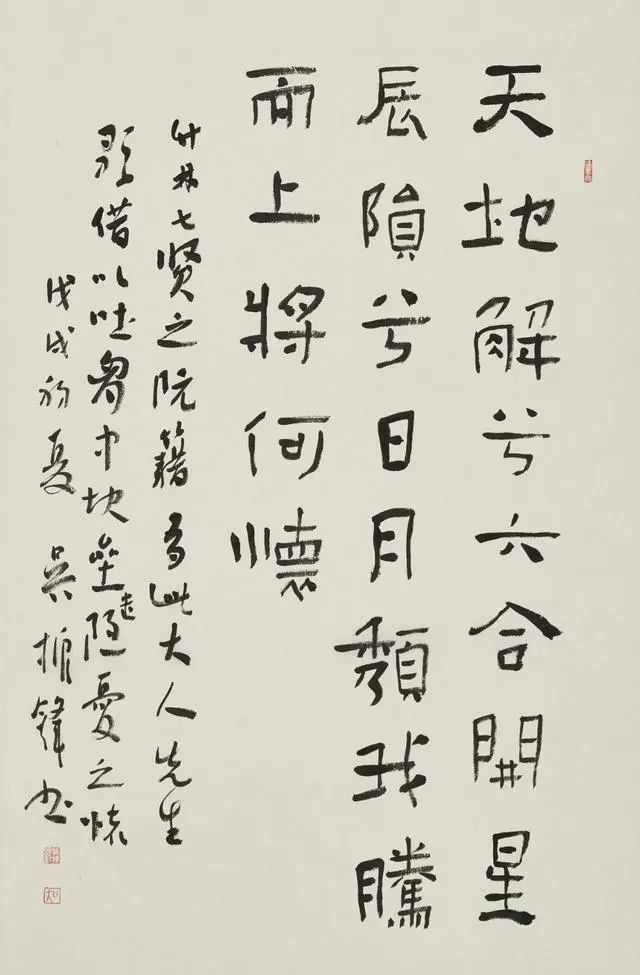 天地解兮六合開星
辰隕兮日月頹我騰
而上將何懷
竹林七贤之阮籍有此大人先生
歌借以吐胷中块垒遣隐憂之懷
戊戌初夏 吳振鋒书